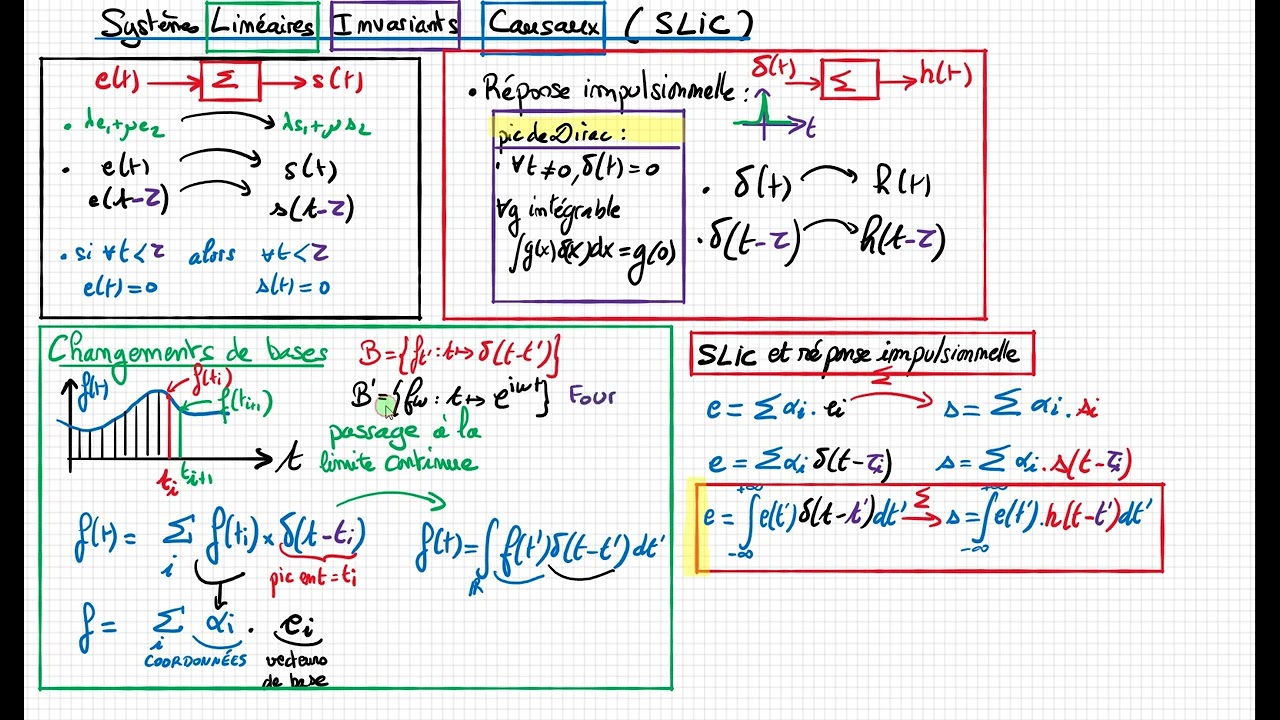 Systèmes Linéaires Invariants Causaux (SLiC)
e(t) → Σ → s(t)
• λe₁+μe₂ → λs₁+μs₂
• e(t) → s(t)
e(t-τ) → s(t-τ)
• si ∀t<τ alors ∀t<τ
e(t)=0 s(t)=0
• Réponse impulsionnelle :
δ(t) → Σ → h(t)
t
pic de Dirac :
• ∀t≠0, δ(t)=0
∀g intégrable
∫g(x)δ(x)dx=g(0)
• δ(t) → h(t)
• δ(t-τ) → h(t-τ)
Changements de bases
B={f_t' : t↦δ(t-t')}
B'={f_ω : t↦e^{iωt}} Four
passage à la
limite continue
f(t)
f(ti)
f(ti+1)
t
ti
ti+1
f(t) = Σ_i f(ti)×δ(t-ti)
pic en t=ti
f(t)=∫_ℝ f(t')δ(t-t')dt'
f = Σ_i αi . ei
COORDONNÉES
vecteurs
de base
SLiC et réponse impulsionnelle
e = Σ αi. ei →Σ s = Σ αi. si
e = Σαi δ(t-τi) s = Σ αi.s(t-τi)
e = ∫_{-∞}^{+∞} e(t')δ(t-t')dt' →Σ s = ∫_{-∞}^{+∞} e(t').h(t-t')dt'